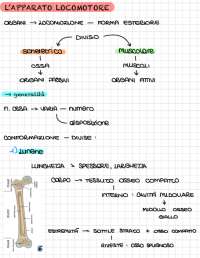 L'APPARATO LOCOMOTORE
ORGANI → LOCOMOZIONE — FORMA ESTERIORE
DIVISO
SCHELETRICO MUSCOLARE
OSSA MUSCOLI
ORGANI PASSIVI ORGANI ATTIVI
→ generalità
N. OSSA → VARIA — NUMERO
DISPOSIZIONE
CONFORMAZIONE — DIVISE:
LUNGHE
LUNGHEZZA > SPESSORE, LARGHEZZA
CORPO → TESSUTO OSSEO COMPATTO
INTERNO: CAVITÀ MIDOLLARE
MIDOLLO OSSEO
GIALLO
ESTREMITÀ → SOTTILE STRATO OSSO COMPATTO
RIVESTE: OSSO SPUGNOSO